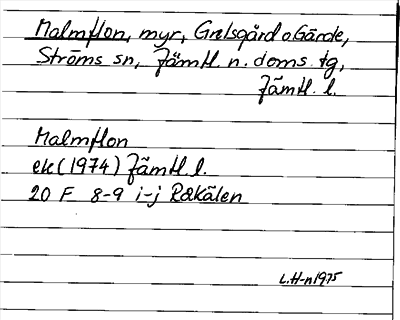 Malmflon, myr, Grelsgård o Gärde,
Ströms sn, Jämtl. n. doms. tg,
Jämtl. l.
Malmflon
ek (1974) Jämtl l.
20 F 8-9 i-j Rätkälen
L.H-n 1975